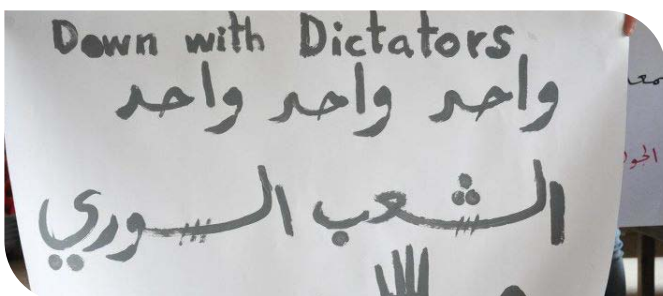 Down with Dictators
واحد واحد واحد
الشعب السوري